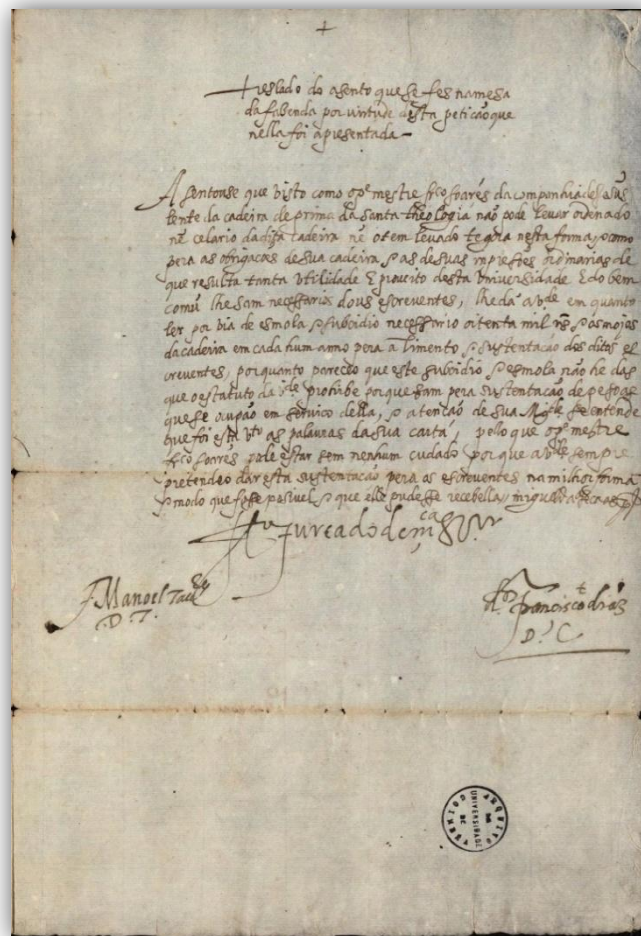 +
treslado do asento que se fes na mesa
da fazenda por virtude desta petição que
nella foi apresentada —
Asentouse que visto como o pe mestre frco soares da companhia de
lente da cadeira de prima da santa theologia não pode levar ordenado
nẽ celario da dita cadeira nẽ o tem levado nesta forma, como
pera as obrigacõs de sua cadeira, as de suas ordinarias de
que resulta tanta utilidade E proveito desta Universidade E do bem
comũ lhe sam necessarios dous escreventes, lhe dá a vde em quanto
ler por via de esmola subsidio necessario oitenta mil rs
da cadeira em cada hum anno pera alimento sustentacão dos ditos es
creventes, por quanto pareceo que este subsidio esmola não he das
que o estatuto da prohibe porque sam pera sustentacão de pesoas
que se ocupão em serviço della, a tenção de sua Mgde se entende
que foi esta as palavras da sua carta, pelo que o pe mestre
frco soares pode estar sem nenhum cudado por que a vde sempre
pretendeo dar esta sustentacão pera os escreventes na milhor forma
modo que fose posivel que elle pudesse recebella,
furtado de mça
Manoel
D. T.
Francisco
D. C
ARQUIVO DA UNIVERSIDADE DE COIMBRA